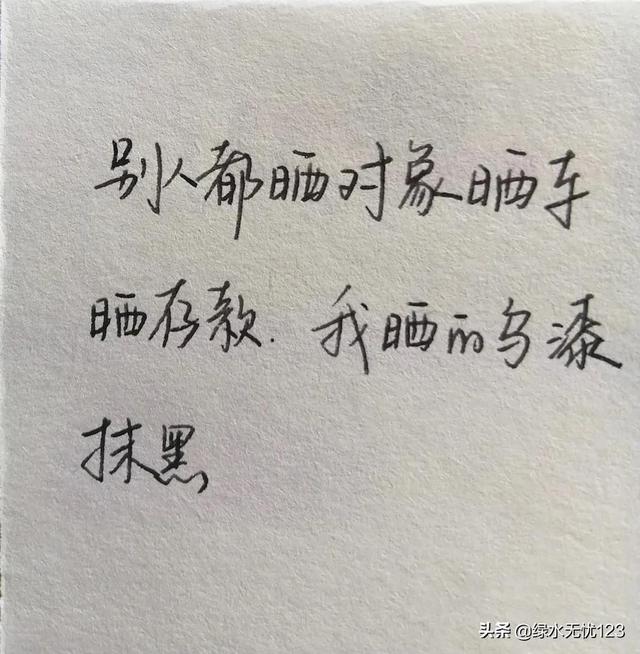 别人都晒对象晒车
晒存款.我晒的乌漆
抹黑
头条 @绿水无忧123